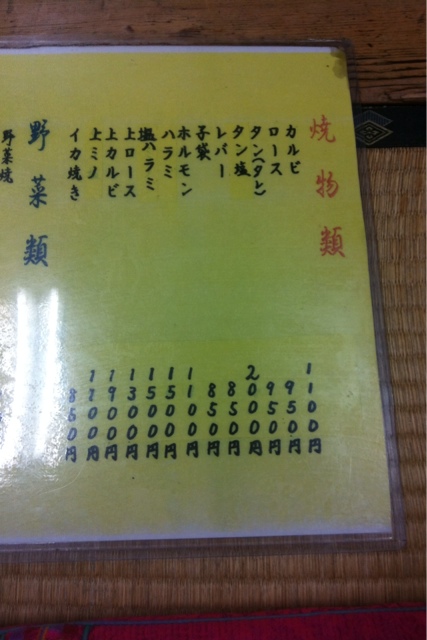 焼物類
カルビ 1100円
ロース 950円
タン(タレ) 950円
タン塩 2000円
レバー 850円
子袋 850円
ホルモン 1100円
ハラミ 1500円
塩ハラミ 1500円
上ロース 1300円
上カルビ 1900円
上ミノ
イカ焼き 850円
野菜類
野菜焼